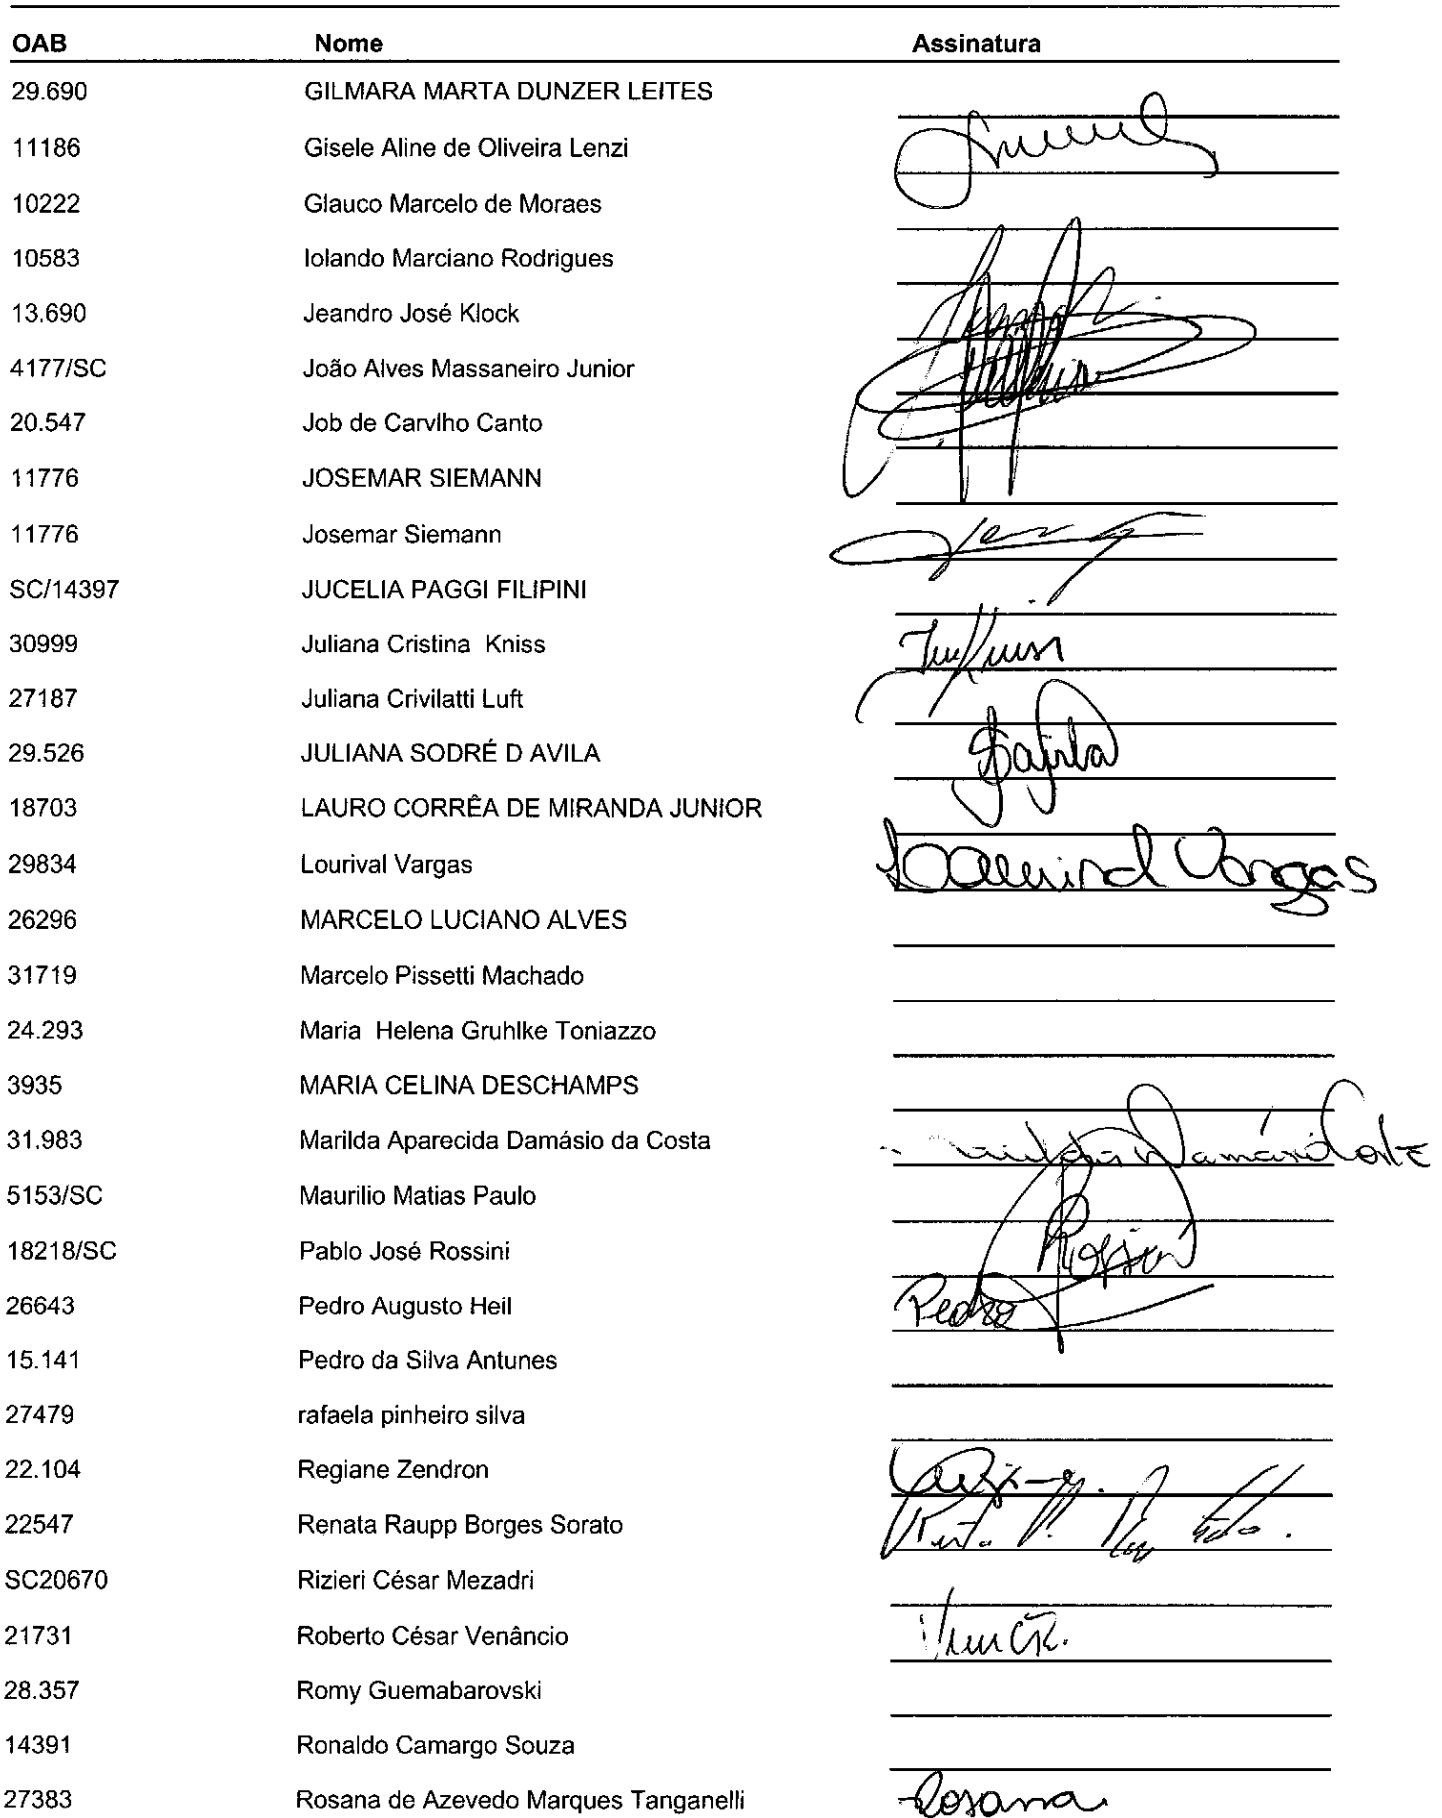 OAB Nome Assinatura
29.690 GILMARA MARTA DUNZER LEITES
11186 Gisele Aline de Oliveira Lenzi
10222 Glauco Marcelo de Moraes
10583 Iolando Marciano Rodrigues
13.690 Jeandro José Klock
4177/SC João Alves Massaneiro Junior
20.547 Job de Carvlho Canto
11776 JOSEMAR SIEMANN
11776 Josemar Siemann
SC/14397 JUCELIA PAGGI FILIPINI
30999 Juliana Cristina Kniss
27187 Juliana Crivilatti Luft
29.526 JULIANA SODRÉ D AVILA
18703 LAURO CORRÊA DE MIRANDA JUNIOR
29834 Lourival Vargas Lourival Vargas
26296 MARCELO LUCIANO ALVES
31719 Marcelo Pissetti Machado
24.293 Maria Helena Gruhlke Toniazzo
3935 MARIA CELINA DESCHAMPS
31.983 Marilda Aparecida Damásio da Costa
5153/SC Maurilio Matias Paulo
18218/SC Pablo José Rossini Rossini
26643 Pedro Augusto Heil Pedro
15.141 Pedro da Silva Antunes
27479 rafaela pinheiro silva
22.104 Regiane Zendron
22547 Renata Raupp Borges Sorato
SC20670 Rizieri César Mezadri
21731 Roberto César Venâncio
28.357 Romy Guemabarovski
14391 Ronaldo Camargo Souza
27383 Rosana de Azevedo Marques Tanganelli Rosana